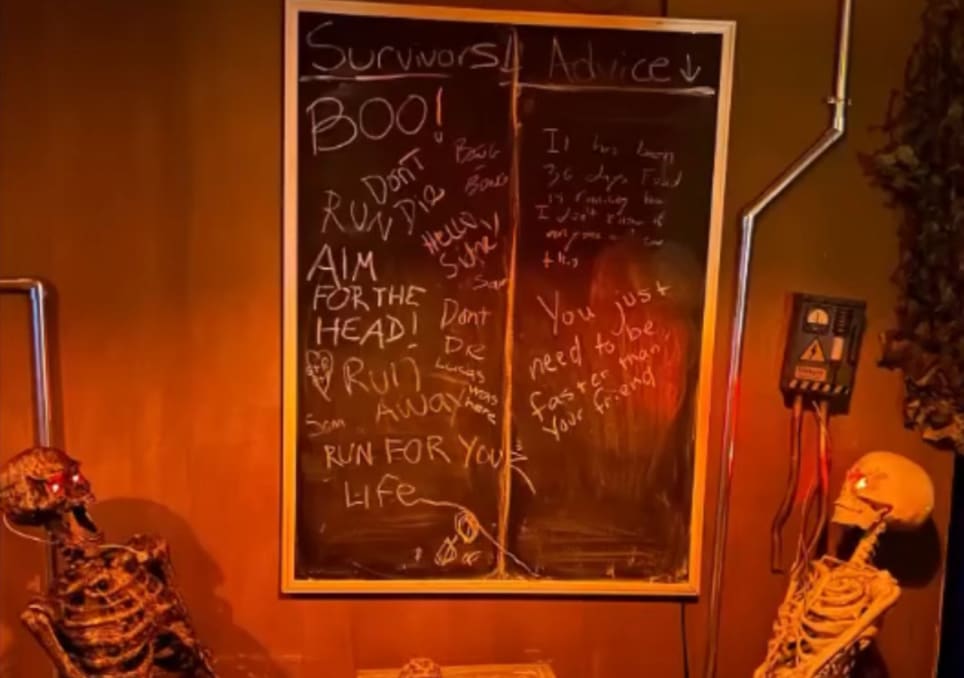 Survivors↓
Advice↓
BOO!
DONT
RUN DIE
BONG
BONG
HELLO,
AIM
FOR THE
HEAD!
Sam
Dont
Die
LUCAS
was
here
RUN
AWAY
Sam
RUN FOR YOU
LIFE
It has been
36 days Food
is running low
I don't know if
this
You just
need to be
faster than
your friend